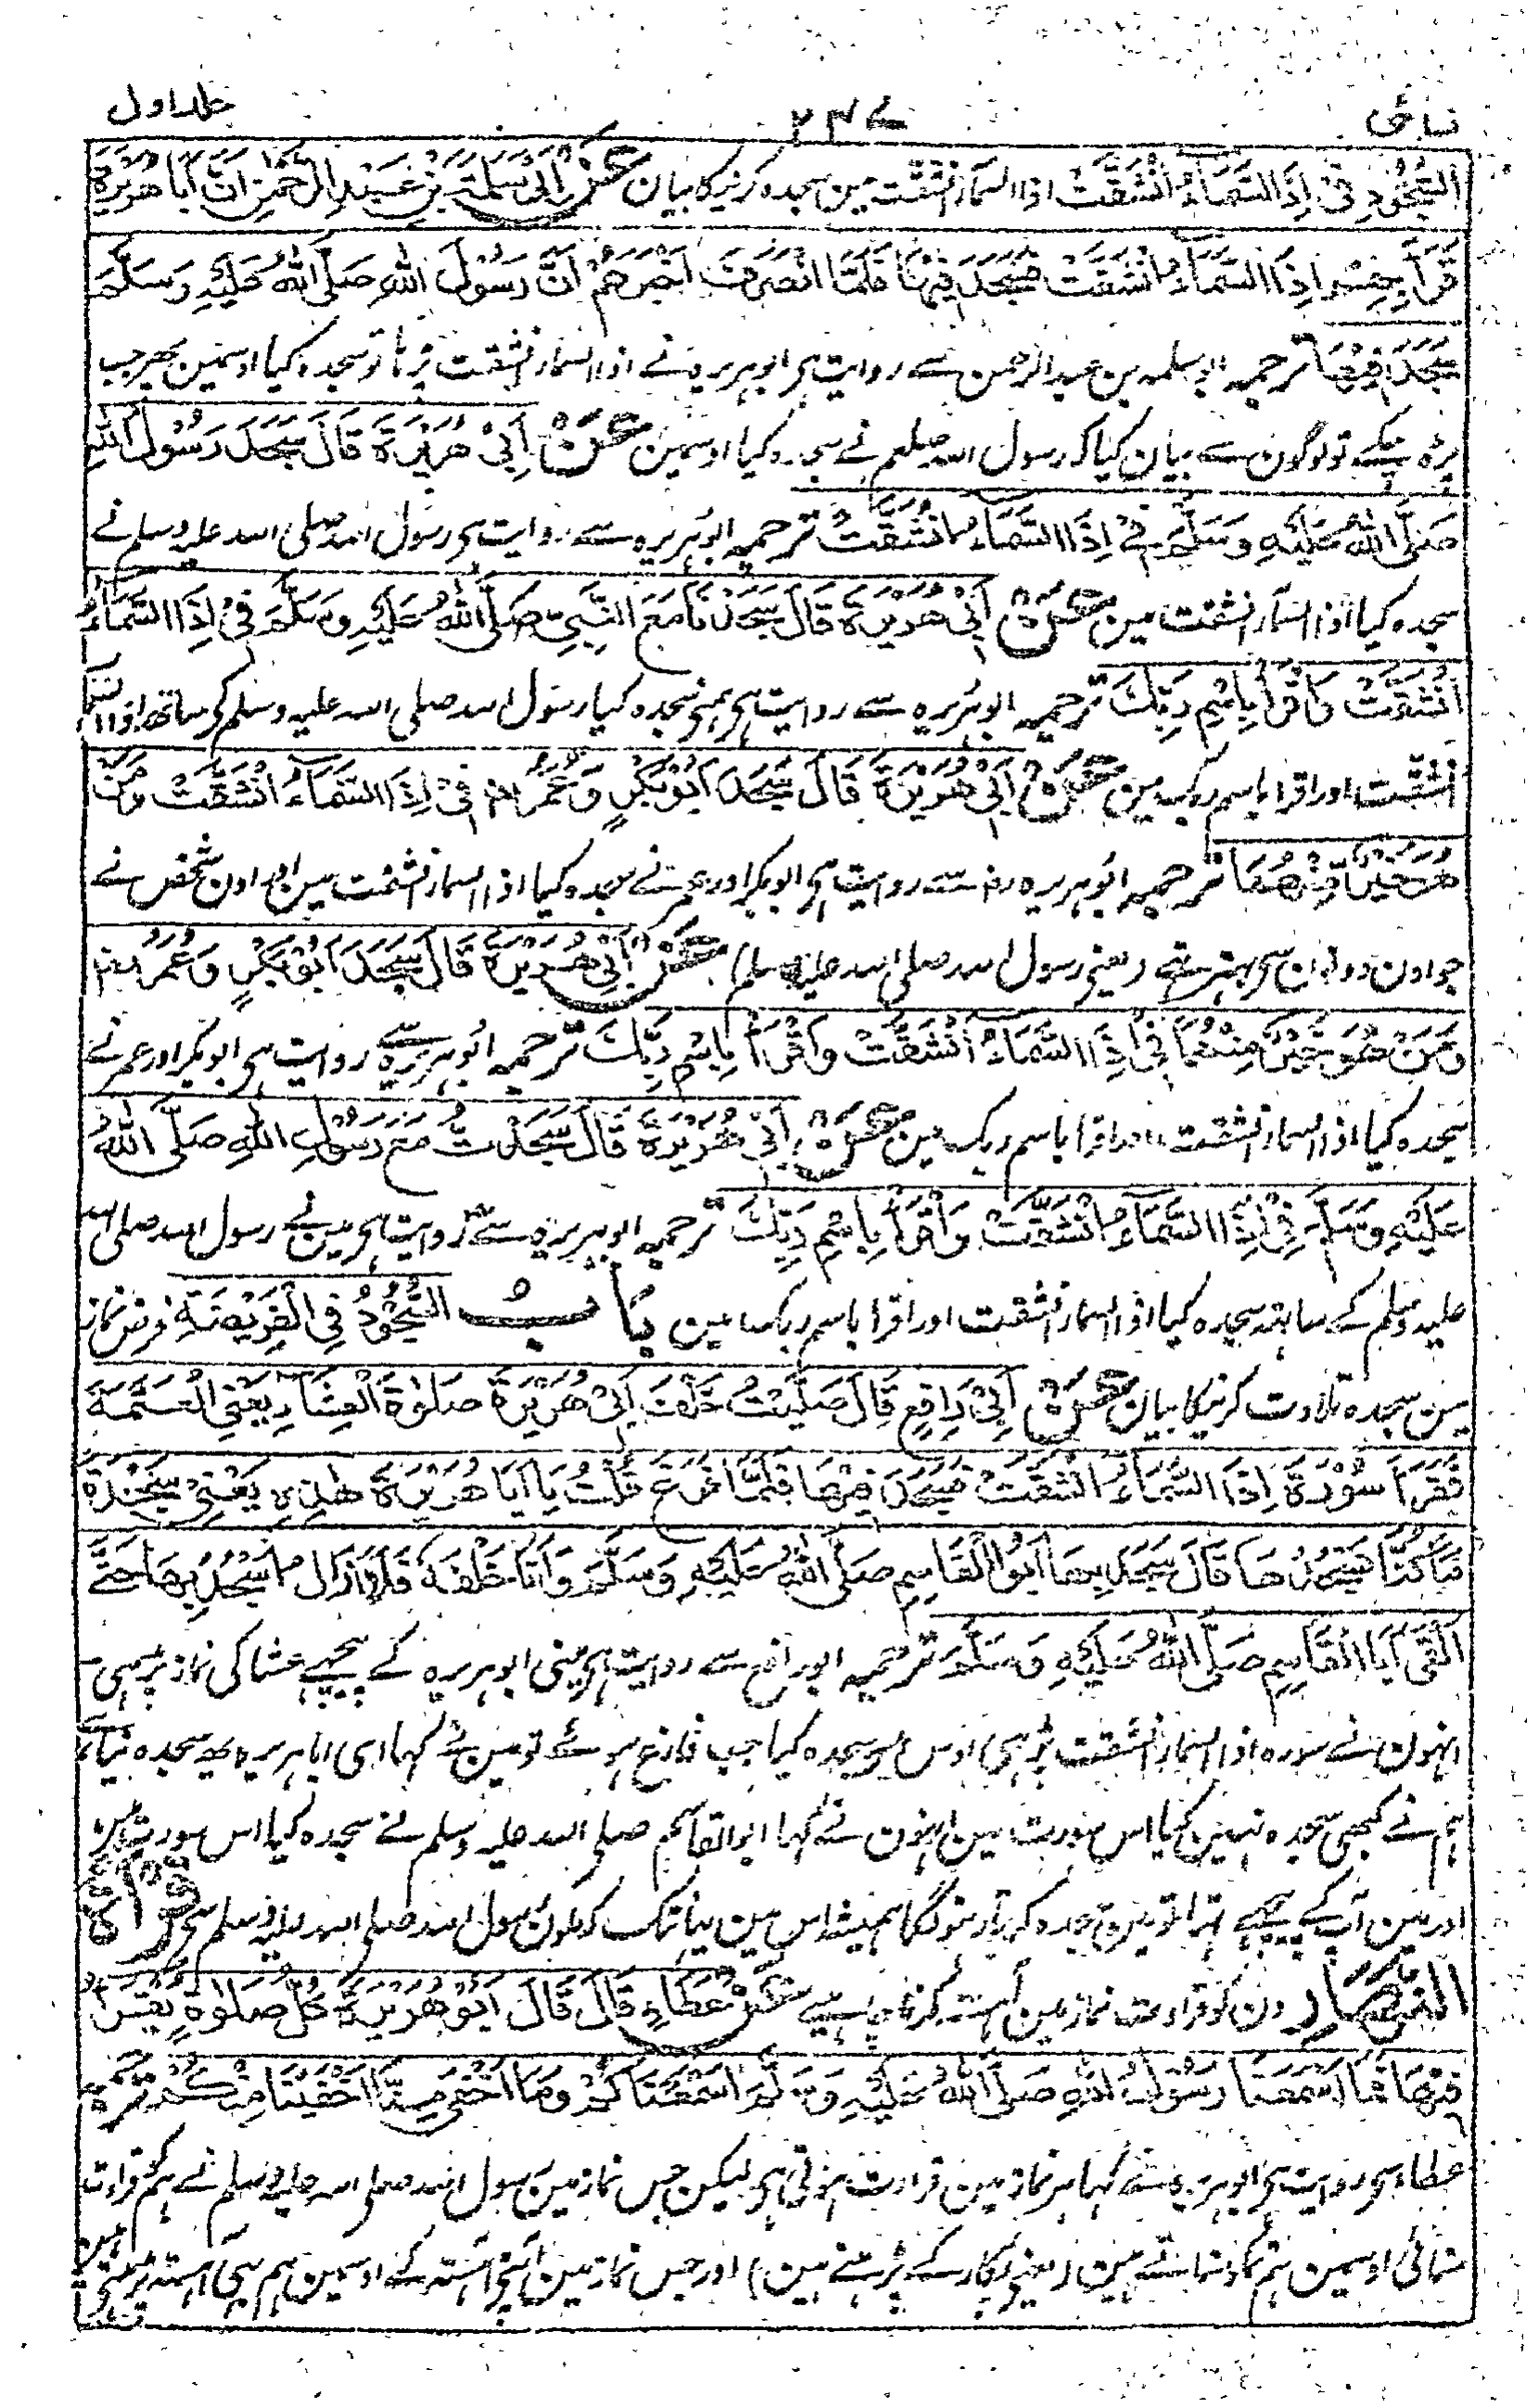 نسائی ۲۳۷ جلد اول
السُّجُوْدِ فِیْ اِذَا السَّمَآءُ انْشَقَّتْ اذا السمار انشقت مین سجدہ کرنیکا بیان عَنْ اَبِیْ سَلَمَةَ بْنِ عَبْدِ الرَّحْمٰنِ اَنَّ اَبَا هُرَیْرَةَ
قَرَأَ بِهِمْ اِذَا السَّمَآءُ انْشَقَّتْ فَسَجَدَ فِیْهَا فَلَمَّا انْصَرَفَ اَخْبَرَهُمْ اَنَّ رَسُوْلَ اللهِ صَلَّی اللهُ عَلَیْهِ وَسَلَّمَ
سَجَدَ فِیْهَا ترجمہ ابو سلمہ بن عبد الرحمن سے روایت ہی ابو ہریرہ نے اذا السمار انشقت پڑہا تو سجدہ کیا اوسمین پھر جب
پڑہ چکے تو لوگون سے بیان کیا کہ رسول اللہ صلعم نے سجدہ کیا اوسمین عَنْ اَبِیْ هُرَیْرَةَ قَالَ سَجَدَ رَسُوْلُ اللهِ
صَلَّی اللهُ عَلَیْهِ وَسَلَّمَ فِیْ اِذَا السَّمَآءُ انْشَقَّتْ ترجمہ ابو ہریرہ سے روایت ہی رسول اللہ صلی اللہ علیہ وسلم نے
سجدہ کیا اذا السمار انشقت مین عَنْ اَبِیْ هُرَیْرَةَ قَالَ سَجَدْنَا مَعَ النَّبِیِّ صَلَّی اللهُ عَلَیْهِ وَسَلَّمَ فِیْ اِذَا السَّمَآءُ
انْشَقَّتْ وَاقْرَأْ بِاسْمِ رَبِّكَ ترجمہ ابو ہریرہ سے روایت ہی ہمنے سجدہ کیا رسول اللہ صلی اللہ علیہ وسلم کے ساتھ اذا السما
انشقت اور اقرا باسم ربک مین عَنْ اَبِیْ هُرَیْرَةَ قَالَ سَجَدَ اَبُوْ بَكْرٍ وَعُمَرُ فِیْ اِذَا السَّمَآءُ انْشَقَّتْ وَمَنْ
هُوَ خَیْرٌ مِّنْهُمَا ترجمہ ابو ہریرہ رض سے روایت ہی ابو بکر اور عمر نے سجدہ کیا اذا السمار انشقت مین اور اون شخص نے
جو اون دونون سی بہتر تہے (یعنی رسول اللہ صلی اللہ علیہ وسلم) عَنْ اَبِیْ هُرَیْرَةَ قَالَ سَجَدَ اَبُوْ بَكْرٍ وَعُمَرُ رض
وَمَنْ هُوَ خَیْرٌ مِنْهُمَا فِیْ اِذَا السَّمَآءُ انْشَقَّتْ وَاقْرَأْ بِاسْمِ رَبِّكَ ترجمہ ابو ہریرہ سے روایت ہی ابو بکر اور عمر نے
سجدہ کیا اذا السمار انشقت اور اقرا باسم ربک مین عَنْ اَبِیْ هُرَیْرَةَ قَالَ سَجَدْتُ مَعَ رَسُوْلِ اللهِ صَلَّی اللهُ
عَلَیْهِ وَسَلَّمَ فِیْ اِذَا السَّمَآءُ انْشَقَّتْ وَاقْرَأْ بِاسْمِ رَبِّكَ ترجمہ ابو ہریرہ سے روایت ہی مین نے رسول اللہ صلی اللہ
علیہ وسلم کے ساتہہ سجدہ کیا اذا السمار انشقت اور اقرا باسم ربک مین بَابُ السُّجُوْدُ فِی الْفَرِیْضَةِ فرض نماز
مین سجدہ تلاوت کرنیکا بیان عَنْ اَبِیْ رَافِعٍ قَالَ صَلَّیْتُ خَلْفَ اَبِیْ هُرَیْرَةَ صَلٰوةَ الْعِشَآءِ یَعْنِی الْعَتَمَةَ
فَقَرَأَ سُوْرَةَ اِذَا السَّمَآءُ انْشَقَّتْ فَسَجَدَ فِیْهَا فَلَمَّا فَرَغَ قُلْتُ یَا اَبَا هُرَیْرَةَ هٰذِهِ یَعْنِیْ سَجْدَةً
مَا كُنَّا نَسْجُدُهَا قَالَ سَجَدَ بِهَا اَبُو الْقَاسِمِ صَلَّی اللهُ عَلَیْهِ وَسَلَّمَ وَاَنَا خَلْفَهٗ فَلَا اَزَالُ اَسْجُدُ بِهَا حَتّٰی
اَلْقٰی اَبَا الْقَاسِمِ صَلَّی اللهُ عَلَیْهِ وَسَلَّمَ ترجمہ ابو رافع سے روایت ہی مینی ابو ہریرہ کے پیچہے عشا کی نماز پڑہی
انہون نے سورہ اذا السمار انشقت پڑہی اوس مین سجدہ کیا جب فارغ ہوئے تو مین نے کہا ای ابا ہریرہ یہ سجدہ نیا ہی
ہم نے کبھی سجدہ نہین کیا اس سورت مین انہون نے کہا ابو القاسم صلی اللہ علیہ وسلم نے سجدہ کیا اس سورت مین
اور مین آپ کے پیچہے تہا تو مین سجدہ کرتا رہونگا ہمیشہ اس مین یہانتک کہ ملون رسول اللہ صلی اللہ علیہ وسلم سی قِرَاءَةُ
النَّهَارِ دن کو قراءت نماز مین آہستہ کرنا چاہیے عَنْ عَطَاءٍ قَالَ قَالَ اَبُوْ هُرَیْرَةَ كُلُّ صَلٰوةٍ یُقْرَأُ
فِیْهَا فَمَا اَسْمَعَنَا رَسُوْلُ اللهِ صَلَّی اللهُ عَلَیْهِ وَسَلَّمَ اَسْمَعْنَاكُمْ وَمَا اَخْفٰی مِنَّا اَخْفَیْنَا مِنْكُمْ ترجمہ
عطاء سی روایت ہی ابو ہریرہ نے کہا ہر نماز مین قراءت ہوتی ہی لیکن جس نماز مین رسول اللہ صلی اللہ علیہ وسلم نے ہمکو قراءت
سنائی اوسمین ہم تمکو سناتے ہین (یعنی پکار کے پڑہتے ہین) اور جس نماز مین آپنے آہستہ کے اوسمین ہم بہی آہستہ پڑہتے ہین